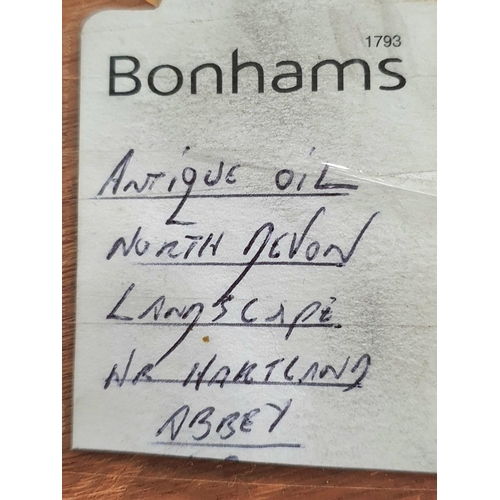 1793
Bonhams
ANTIQUE OIL
NORTH DEVON
LANDSCAPE
NR HARTLAND
ABBEY